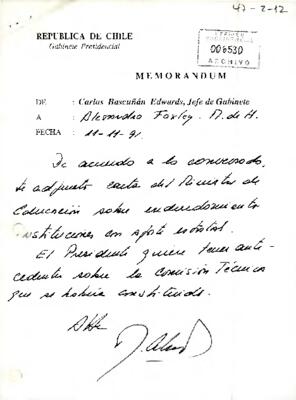 47-2-12
REPUBLICA DE CHILE
Gabinete Presidencial
006530
ARCHIVO
MEMORANDUM
DE : Carlos Bascuñán Edwards, Jefe de Gabinete
A : Alejandro Foxley. M. de H.
FECHA : 11-11-91
De acuerdo a lo conversado,
te adjunto carta del Ministro de
Educación sobre endeudamiento
instituciones con aporte estatal.
El Presidente quiere tener ante-
cedentes sobre la Comisión Técnica
que se habría constituido.